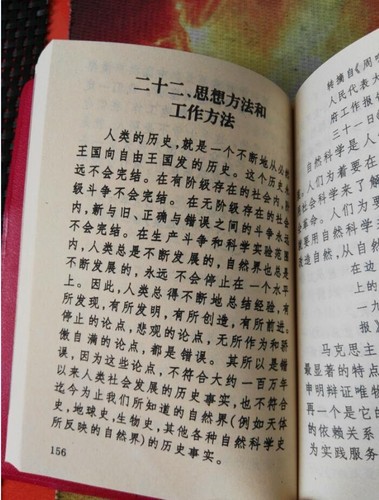 二十二、思想方法和
工作方法
人类的历史，就是一个不断地从必然
王国向自由王国发的历史。这个历史永
远不会完结。在有阶级存在的社会内，阶
级斗争不会完结。在无阶级存在的社会
内，新与旧、正确与错误之间的斗争永远
不会完结。在生产斗争和科学实验范围
内，人类总是不断发展的，自然界也总是
不断发展的，永远不会停止在一个水平
上。因此，人类总得不断地总结经验，有
所发现，有所发明，有所创造，有所前进。
停止的论点，悲观的论点，无所作为和骄
傲自满的论点，都是错误。其所以是错
误，因为这些论点，不符合大约一百万年
以来人类社会发展的历史事实，也不符合
迄今为止我们所知道的自然界(例如天体
史，地球史，生物史，其他各种自然科学史
所反映的自然界)的历史事实。
156
转摘自《周
人民代表大
府工作报告
三十一日
自然科学是人
。人们为着要在
社会科学来了解
会革命。人们为要
就要用自然科学
造自然，从自然
在边
上的
一九
报》
马克思主
最显著的特点
申明辩证唯物
再一个是它的
的依赖关系
为实践服务